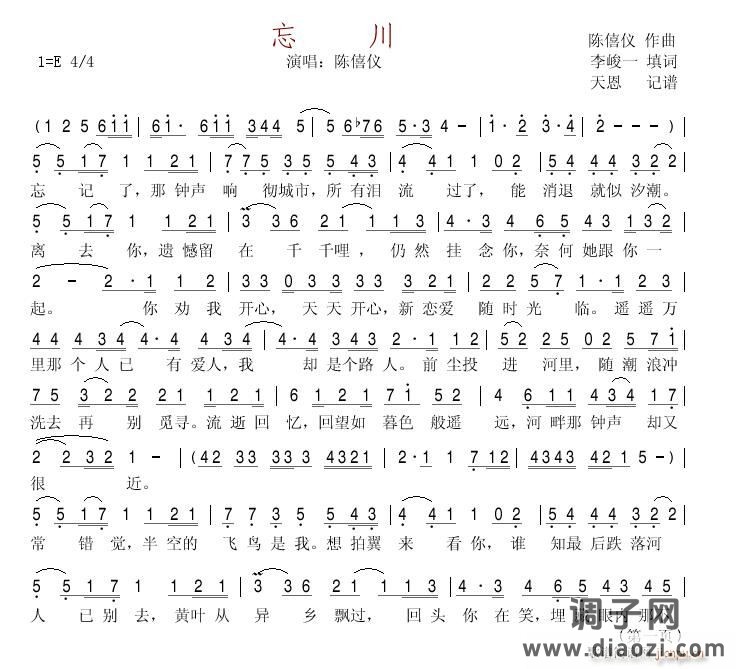 忘 川
陈僖仪 作曲
1=E 4/4
演唱：陈僖仪
李峻一 填词
天恩 记谱
(1 2 5 6 i i | 6 i · 6 i i 3 4 4 | 5 5 6 ♭7 6 5 · 3 4 - | i · 2 3 · 4 | 2 - - - )|
5 5 1 7 1 1 2 1 | 7 7 5 3 5 5 4 3 | 4 4 1 1 0 2 | 5 4 4 3 2 2 1 |
忘 记 了，那 钟 声 响 彻城市，所 有泪 流 过 了， 能 消退 就似 汐潮。
5 5 1 7 · 1 1 2 1 | 3 3 6 2 1 1 1 3 | 4 · 3 4 6 5 4 3 1 3 2 |
离 去 你，遗 憾留 在 千 千哩，仍然 挂 念你，奈何 她跟 你 一
2 - 2 · 1 1 2 | 3 3 0 3 3 3 3 2 1 | 2 2 5 7 · 1 2 3 |
起。 你 劝 我 开心，天 天 开心，新 恋爱 随 时 光 临。遥 遥 万
4 4 4 3 4 · 4 · 3 4 | 4 · 3 4 3 2 · 1 2 1 | 5 2 2 5 0 2 5 7 i |
里那 个 人 已 有 爱人，我 却 是个 路 人。前 尘投 进 河里，随 潮 浪冲
7 5 3 2 2 1 1 2 1 | 5 2 1 2 3 4 5 6 | 6 5 5 4 3 3 4 1 7 |
洗去 再 别 觅寻。流 逝 回 忆，回望如 暮色 般遥 远，河 畔那 钟声 却又
2 2 3 2 2 - | (4 2 3 3 3 3 4 3 2 1 | 2 · 1 1 7 1 2 | 4 3 4 3 4 2 5 2 1)|
很 近。
5 5 1 7 1 1 2 1 | 7 7 3 5 5 4 3 | 4 4 1 1 0 2 | 5 4 4 3 2 2 1 |
常 错 觉，半 空的 飞 鸟 是 我。想 拍翼 来 看 你，谁 知最 后跌 落河
5 5 1 7 1 1 2 1 | 3 3 6 2 1 1 1 3 |
人 已 别 去，黄叶 从 异 乡 飘过，回 头 你 在 笑，埋
（第一页）
调子网
www.diaozi.com